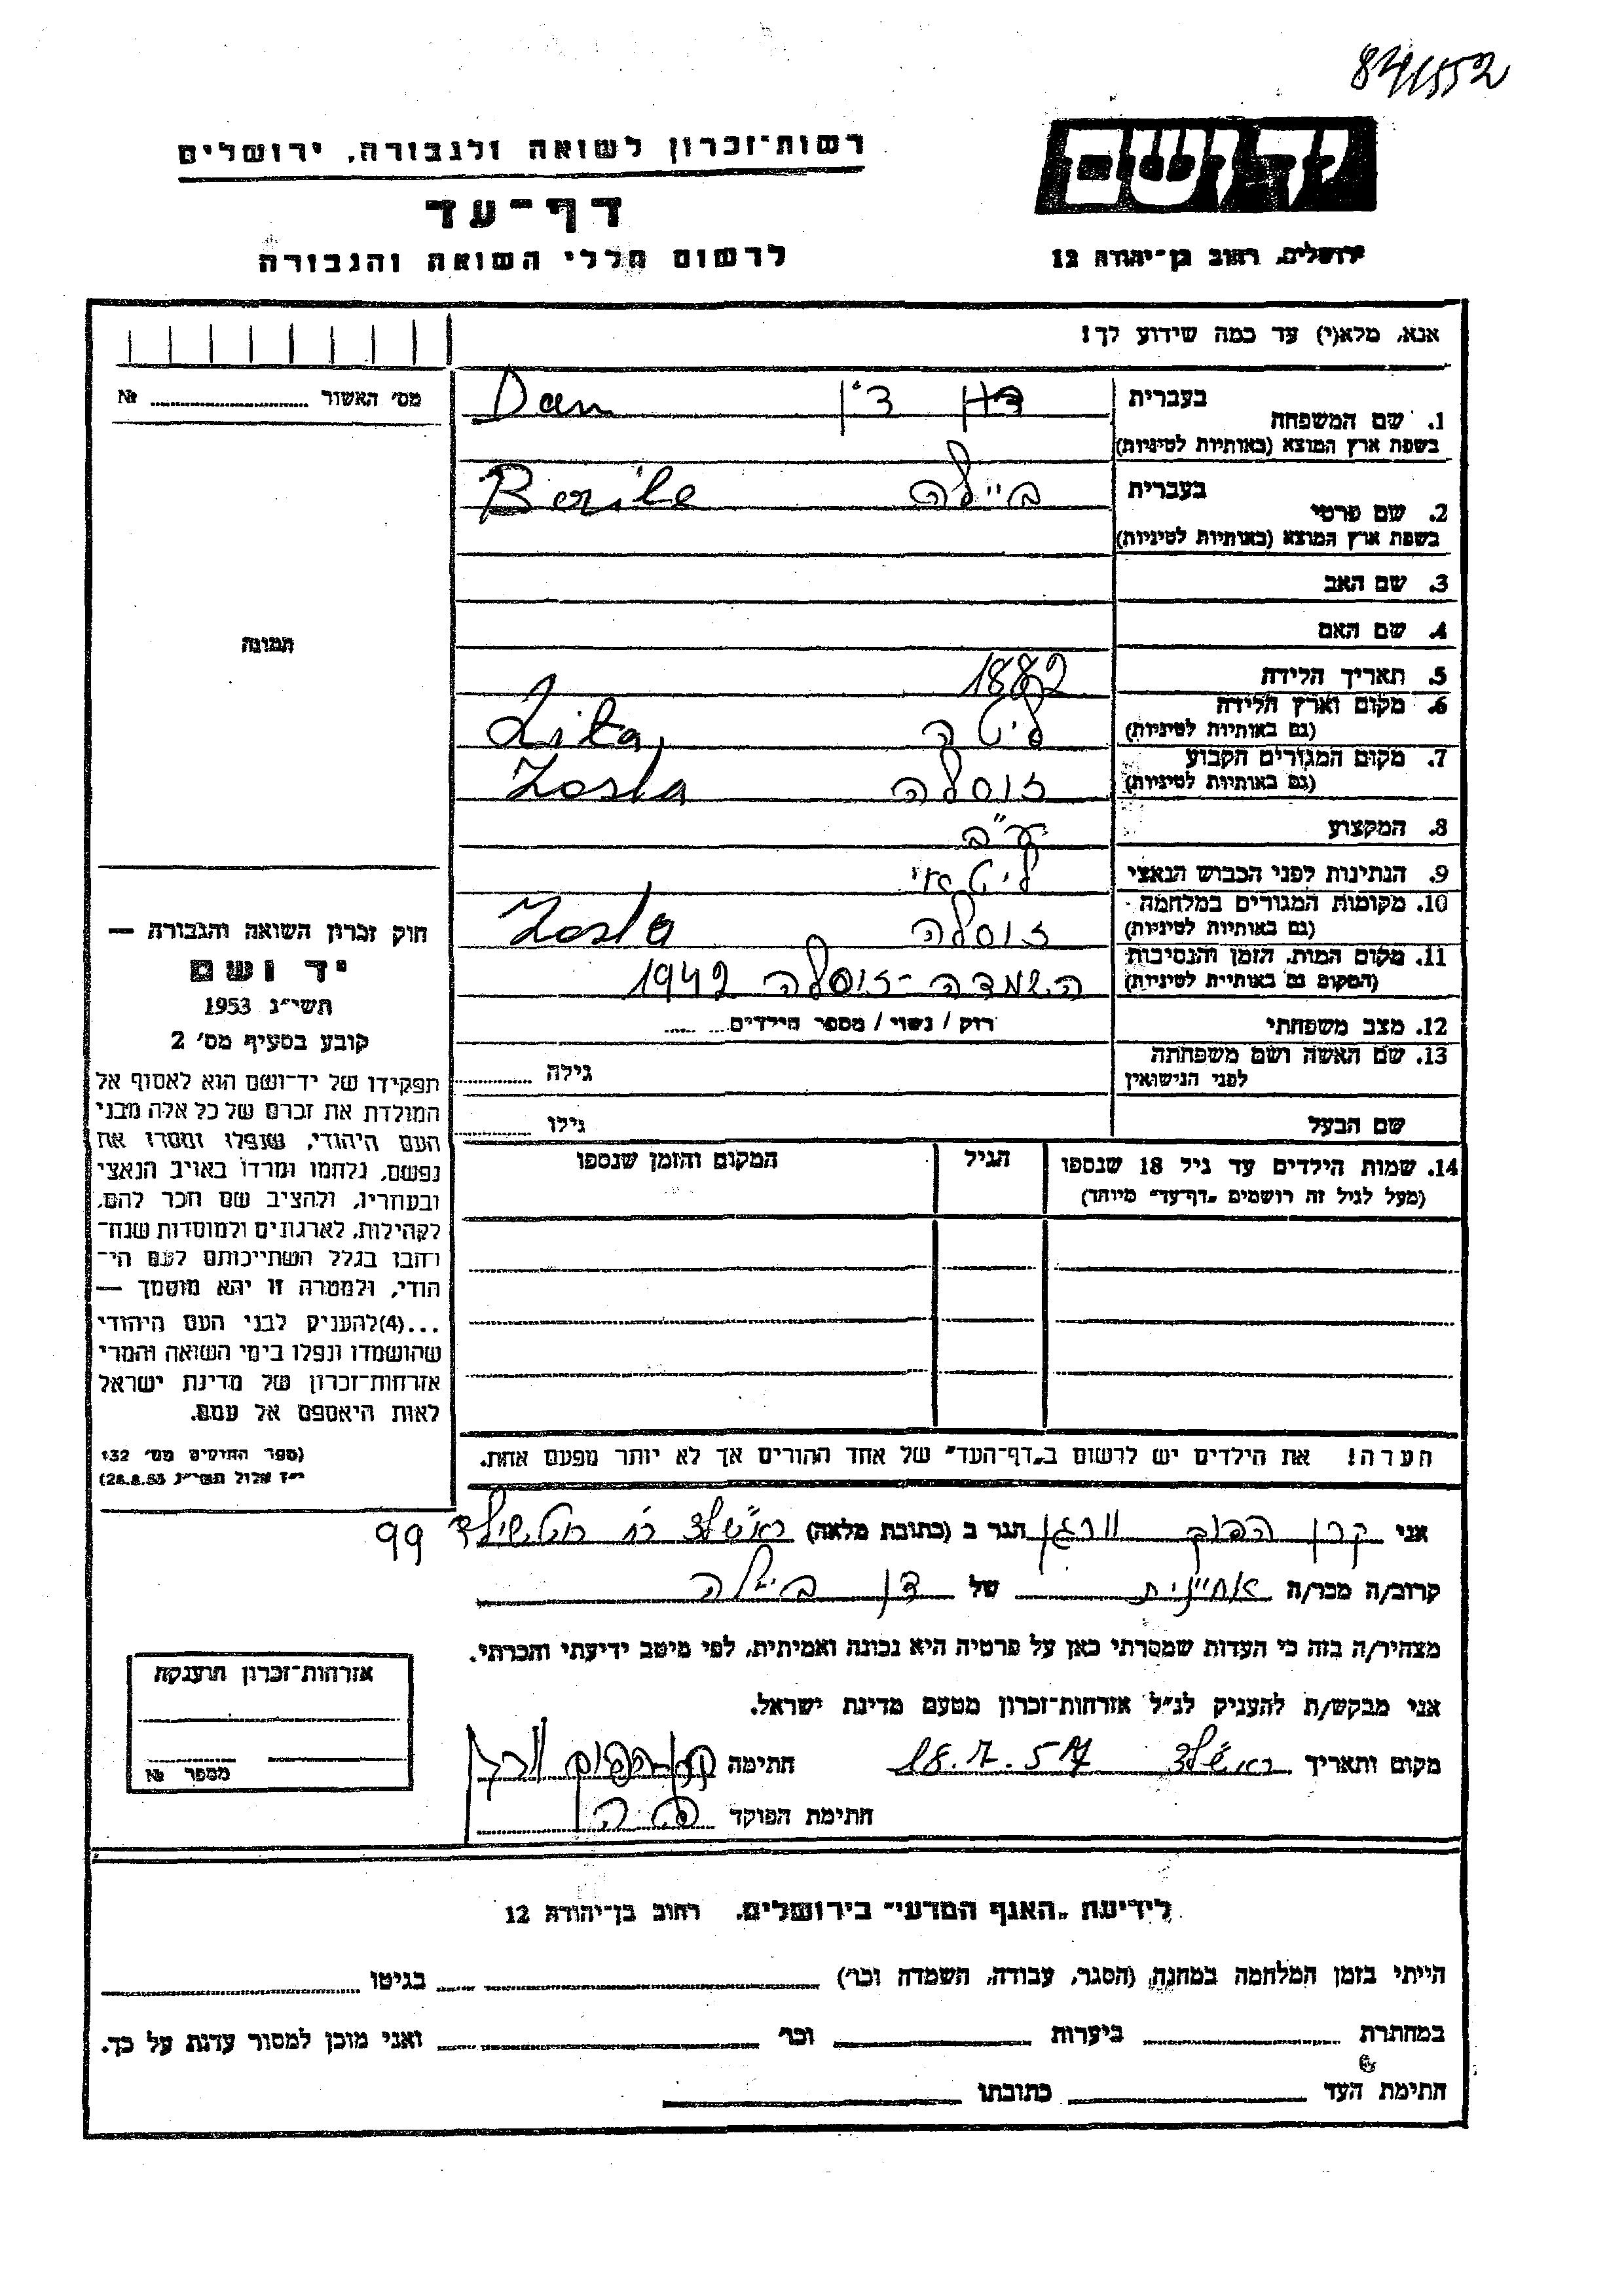 רשות־זכרון לשואה ולגבורה, ירושלים
דף־עד
לרשום חללי השואה והגבורה
יד ושם
ירושלים, רחוב בן־יהודה 12
אנא, מלא(י) עד כמה שידוע לך!
מס׳ האשור № 
1. שם המשפחה בעברית דן Dan
בשפת ארץ המוצא (באותיות לטיניות)
2. שם פרטי בעברית ביילה
בשפת ארץ המוצא (באותיות לטיניות)
3. שם האב
4. שם האם
5. תאריך הלידה 1882
6. מקום וארץ הלידה ליטה Lita
(גם באותיות לטיניות)
7. מקום המגורים הקבוע זוסלה Zosla
(גם באותיות לטיניות)
8. המקצוע עב״ב
9. הנתינות לפני הכבוש הנאצי ליטאי
10. מקומות המגורים במלחמה זוסלה Zosla
(גם באותיות לטיניות)
11. מקום המות, הזמן והנסיבות השמדה־זוסלה 1942
(המקום גם באותיות לטיניות)
12. מצב משפחתי רווק / נשוי / מספר הילדים
13. שם האשה ושם משפחתה גילה
לפני הנישואין
שם הבעל גילו
14. שמות הילדים עד גיל 18 שנספו הגיל המקום והזמן שנספו
(מעל לגיל זה רושמים „דף־עד״ מיוחד)
הערה! את הילדים יש לרשום ב„דף־העד״ של אחד ההורים אך לא יותר מפעם אחת.
תמונה
חוק זכרון השואה והגבורה —
יד ושם
תשי״ג 1953
קובע בסעיף מס׳ 2
תפקידו של יד־ושם הוא לאסוף אל
המולדת את זכרם של כל אלה מבני
העם היהודי, שנפלו ומסרו את
נפשם, נלחמו ומרדו באויב הנאצי
ובעוזריו, ולהציב שם וזכר להם,
לקהילות, לארגונים ולמוסדות שנח־
רבו בגלל השתייכותם לעם הי־
הודי, ולמטרה זו יהא מוסמך —
...(4)להעניק לבני העם היהודי
שהושמדו ונפלו בימי השואה והמרי
אזרחות־זכרון של מדינת ישראל
לאות היאספם אל עמם.
(ספר החוקים מס׳ 132
י״ז אלול תשי״ג 28.8.53)
אני קרן הגר ב (כתובת מלאה) ראשל״צ רח׳ רוטשילד 99
קרוב/ה מכר/ה אחיינית של דן ביילה
מצהיר/ה בזה כי העדות שמסרתי כאן על פרטיה היא נכונה ואמיתית, לפי מיטב ידיעתי והכרתי.
אני מבקש/ת להעניק לנ״ל אזרחות־זכרון מטעם מדינת ישראל.
מקום ותאריך ראשל״צ 18.7.57 חתימה
חתימת הפוקד
אזרחות־זכרון הוענקה
מספר №
לידיעת „האגף המדעי״ בירושלים, רחוב בן־יהודה 12
הייתי בזמן המלחמה במחנה, (הסגר, עבודה, השמדה וכו׳) בגיטו
במחתרת ביערות וכו׳ ואני מוכן למסור עדות על כך.
חתימת העד כתובתו